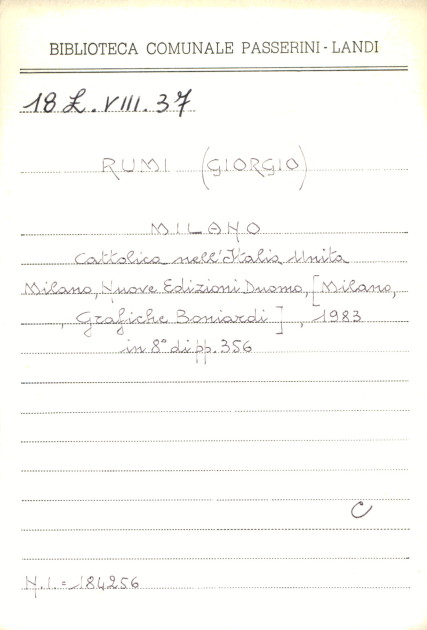 BIBLIOTECA COMUNALE PASSERINI - LANDI
18 L. VIII. 37
RUMI (GIORGIO)
MILANO
Cattolica nell'Italia Unita
Milano, Nuove Edizioni Duomo, [Milano,
, Grafiche Boniardi] , 1983
in 8° di pp. 356
C
N.I. = 184256